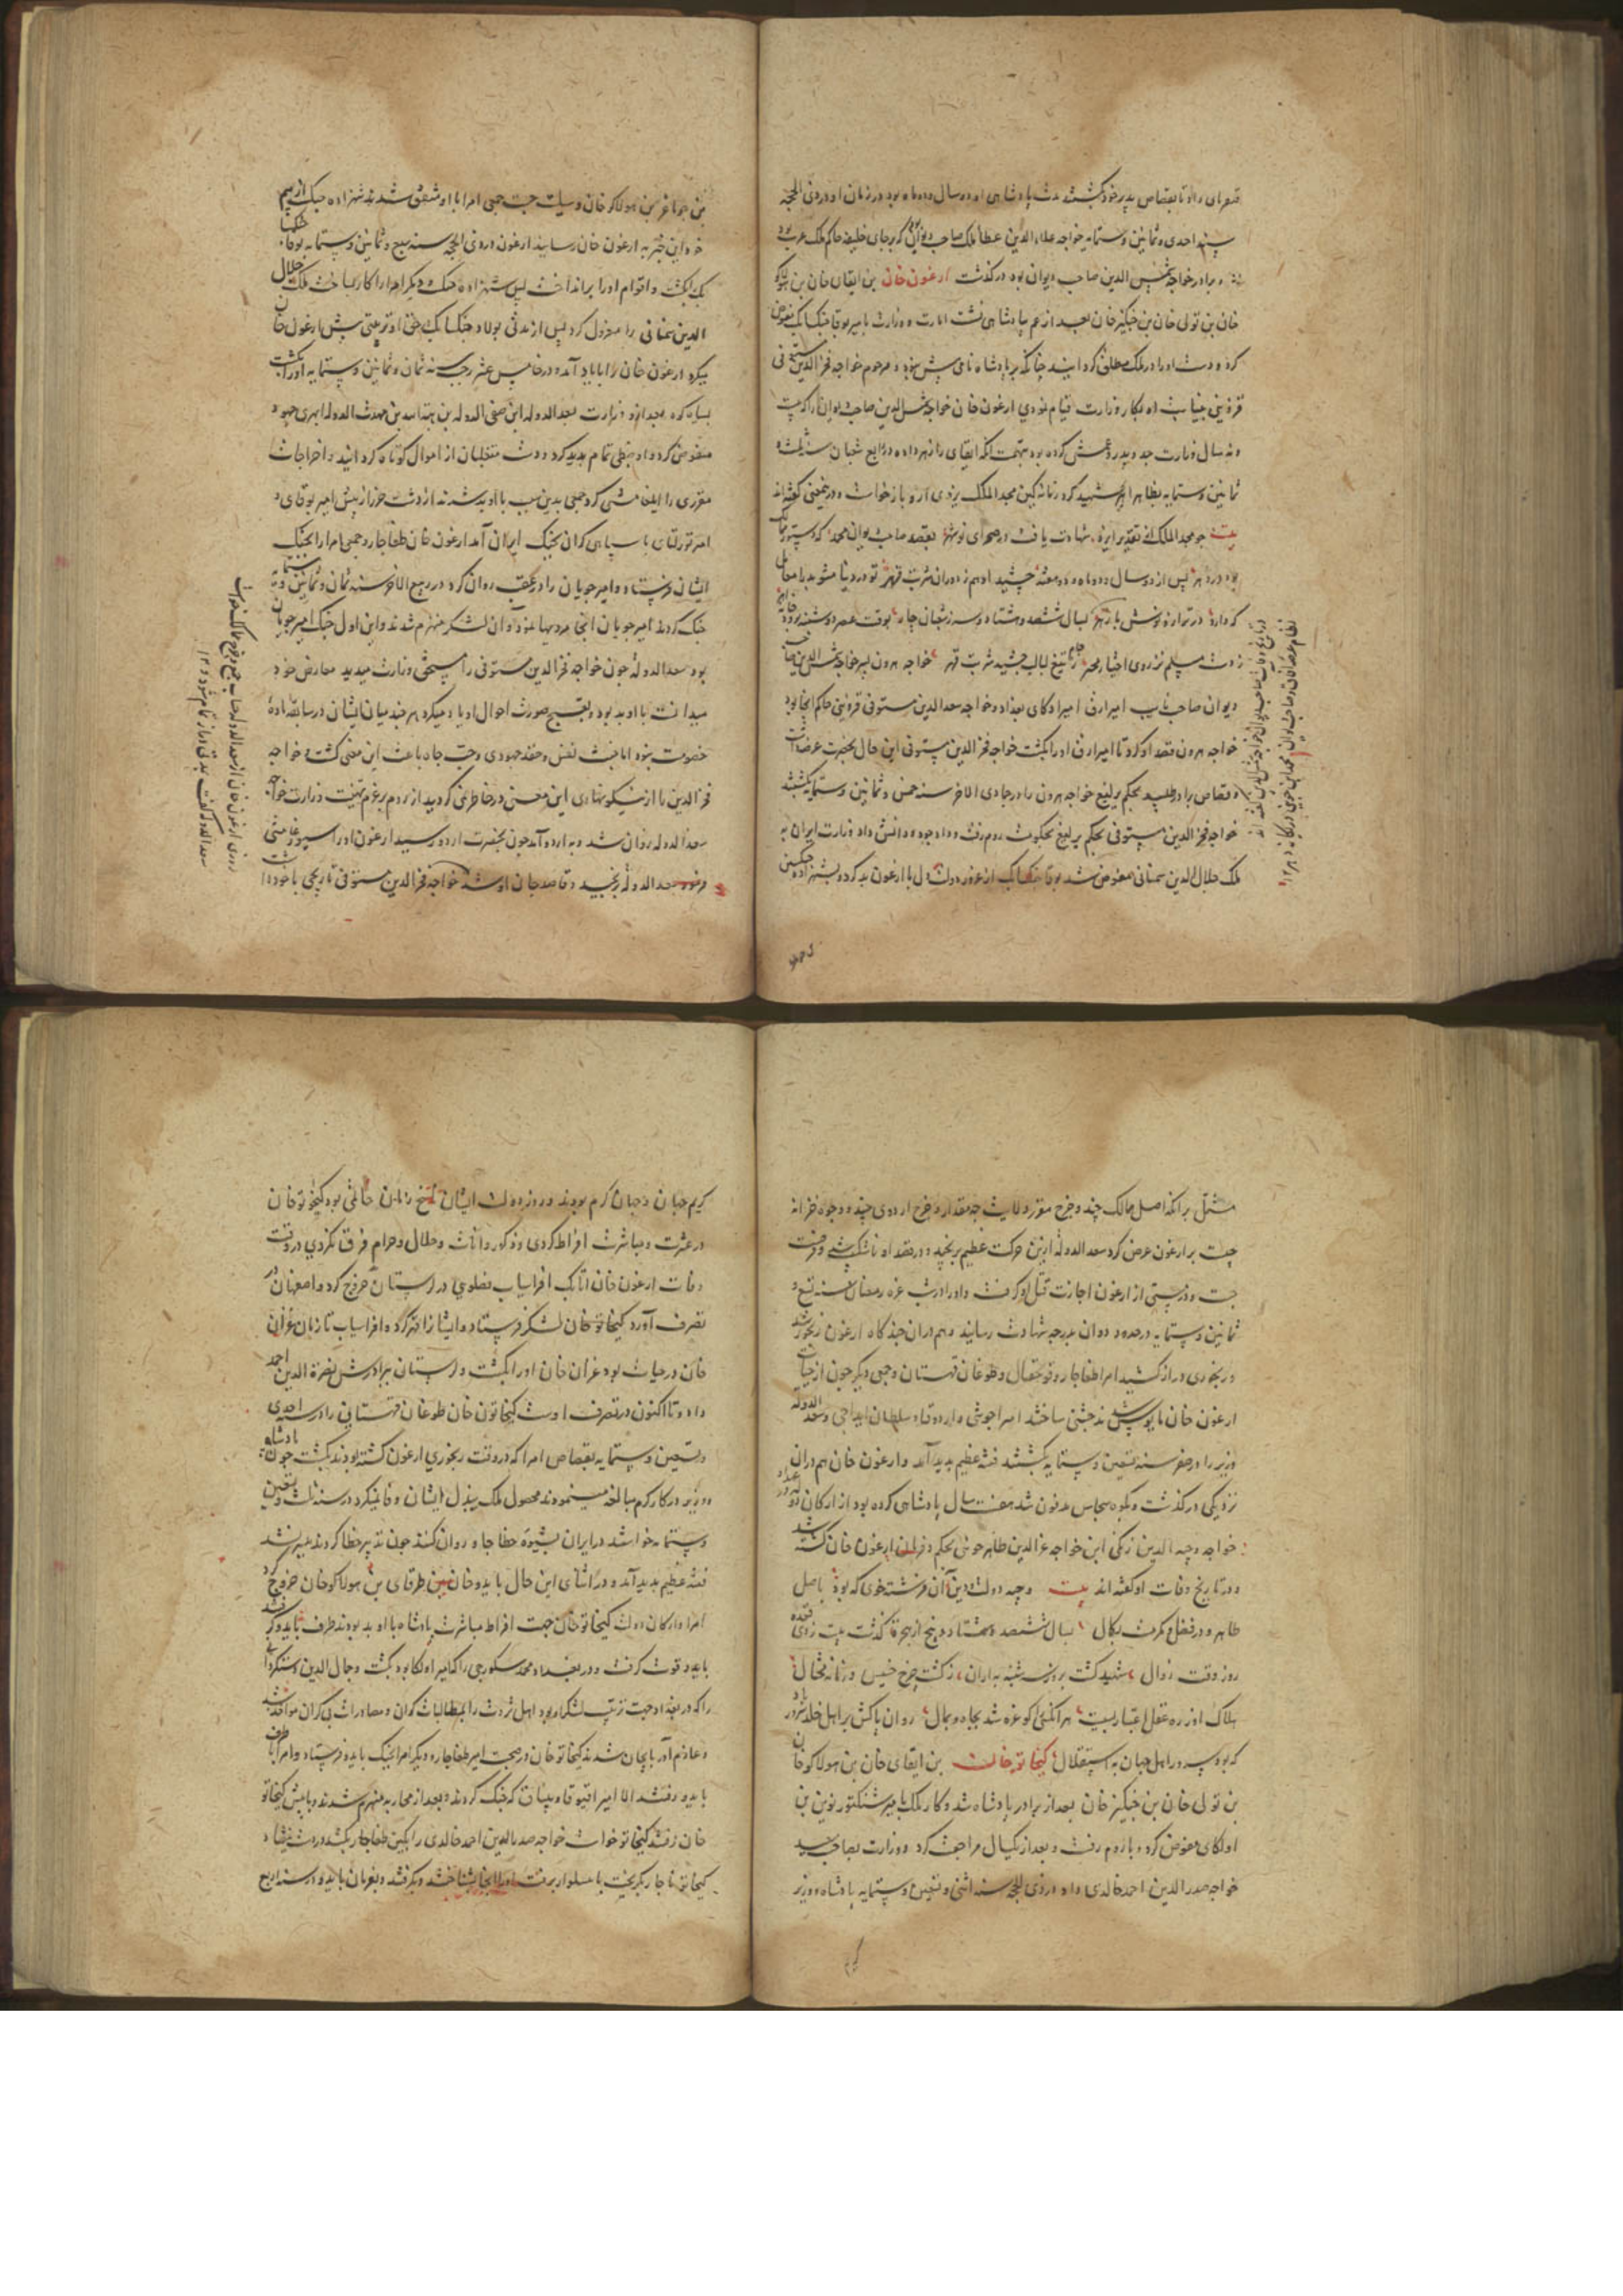 قنغرای داد تا بقصاص پدر خود بکشتند مدت پادشاهی او دو سال و دو ماه بود در زمان او در ذی الحجه
سنه احدی و ثمانین و ستمایه خواجه علاء الدین عطا ملک صاحب دیوان که بر جای خلیفه حاکم ملک عرب بود
و برادر خواجه شمس الدین صاحب دیوان بود درگذشت ارغون خان بن ابقای خان بن هولاکو
خان بن تولی خان بن جنکیز خان بعد از عم پادشاهی نشست امارت و وزارت بامیر بوقا جنکسانک تفویض
کرد و دست او را در ملک مطلق گردانید چنانکه بر پادشاه نامی بیش نبود و مرحوم خواجه فخر الدین مستوفی
قزوینی بنیابت او بکار وزارت قیام نمودی ارغون خان خواجه شمس الدین صاحب دیوان را که بیست
و نه سال وزارت جد و پدر و عمش کرده بود بتهمت آنکه ابقای را زهر داده در رابع شعبان سنه ثلث و
ثمانین و ستمایه بظاهر اهر شهید کرد زمانه کین مجد الملک یزدی از او بازخواست و در این معنی گفته‌اند
بیت چو مجد الملک از تقدیر ایزد شهادت یافت در صحرای نوشهر بقصد صاحب دیوان محمد که دستور ممالک
بود در دهر پس از دو سال و دو ماه و دو هفته چشید او هم ز دوران شربت قهر تو در دنیا مشو بد را معامل
که دارد در ترازو نوش با زهر بسال ششصد و هشتاد و سه ز شعبان چار بوقت عصر دوشنبه برودخانه اهر
ز دست ... نز روی اختیار محمد ز جام تیغ لبالب چشید شربت قهر خواجه هرون پسر خواجه شمس الدین صاحب
دیوان صاحب نایب امیر اروق امیر اولکای بغداد و خواجه سعد الدین مستوفی قزوینی حاکم آنجا بود
خواجه هرون قصد او کرد تا امیر اروق او را بکشت خواجه فخر الدین مستوفی این حال بحضرت عرضه داشت
و قصاص برادر طلبید بحکم یرلیغ خواجه هرون را در جمادی الاخر سنه خمس و ثمانین و ستمایه بکشتند
خواجه فخر الدین مستوفی بحکم یرلیغ بحکومت روم رفت و داد جود و دانش داد وزارت ایران به
ملک جلال الدین سمنانی مفوض شد بوقا جنکسانک از غرور دولت دل با ارغون بد کرد و بشهزاده جشکب
بن جوماغر بن هولاکو خان وسیلت جست جمعی امرا با او متفق شدند شهزاده جشکب از بیم
خود این خبر به ارغون خان رسانید ارغون در ذی الحجه سنه سبع و ثمانین و ستمایه بوقا جنکسانک
بکشت و اقوام او را برانداخت پس شهزاده جشکب و دیگر امرا را کار بساخت ملک جلال
الدین سمنانی را معزول کرد پس از مدتی بولاد جنکسانک حق او تربیتی پیش ارغون خان
میکرد ارغون خان را با یاد آمد و در خامس عشر رجب سنه ثمان و ثمانین و ستمایه او را بکشت
بعد از او وزارت بسعد الدوله ابن صفی الدوله بن هبة الله بن مهذب الدوله ابهری جهود
مفوض کرد و او ضبطی تمام پدید کرد و دست متغلبان از اموال کوتاه گردانید و اخراجات
مقرری را ... کرد جمعی بدین سبب با او بد شدند ...
امیر نوروز ... با سپاهی گران بجنگ ایران آمد ارغون خان طغاجار و جمعی امرا را بجنگ
ایشان فرستاد و امیر جوبان را در عقب روان کرد در ربیع الاخر سنه ثمان و ثمانین و ستمایه
جنگ کردند امیر جوبان آنجا مردیها نمود و آن لشکر منهزم شدند و این اول جنگ امیر جوبان
بود سعد الدوله چون خواجه فخر الدین مستوفی را مستحق وزارت میدید معارض خود
میدانست با او بد بود و بقبیح صورت احوال او یاد میکرد هر چند میان ایشان در سابقه ماده
خصومت نبود اما خبث نفس و حقد جهودی و حب جاه باعث این معنی گشت و خواجه
فخر الدین را از نیکو نهادی این معنی در خاطر نمی‌گردید از روم بر عزم تهنیت وزارت خواجه
سعد الدوله روان شد و به اردو آمد چون بحضرت اردو رسید ارغون او را سیورغامیشی
فرمود سعد الدوله برنجید و قاصد جان او شد خواجه فخر الدین مستوفی تاریخی با خود داشت
مشتمل بر آنکه اصل ممالک چند و خرج مقرر ولایت چه مقدار و خرج اردوی چند و وجوه خزانه
چیست بر ارغون عرض کرد سعد الدوله از این حرکت عظیم برنجید و در قصد او ... و فرصت
جست و در مستی از ارغون اجازت قتل او گرفت و او را در شب غره رمضان سنه تسع و
ثمانین و ستمایه در حدود دوان بدرجه شهادت رسانید و هم در آن چند گاه ارغون رنجور شد
و رنجوری دراز کشید امرا طغاجار و قونجقبال و طوغان قهستان و جمعی دیگر چون از حیات
ارغون خان مایوس شدند جشنی ساختند امیر اجوشی و اردوقیا و سلطان ایداجی و سعد الدوله
وزیر را در صفر سنه تسعین و ستمایه بکشتند فتنه عظیم پدید آمد و ارغون خان هم در آن
نزدیکی درگذشت و بکوه سجاس مدفون شد هفت سال پادشاهی کرده بود از ارکان دولت او
خواجه وجیه الدین زنگی ابن خواجه عز الدین طاهر حوشی بحکم و فرمان ارغون خان کشته شد
و در تاریخ وفات او گفته‌اند بیت وجیه دولت و دین آن فرشته خوی که بود باصل
طاهر و در فضل و مکرمت بکمال بسال ششصد و هشتاد و پنج از هجرت گذشت بیست ز ذی قعده
روز وقت زوال شهید گشت بروز سه شنبه به اران ز گشت چرخ خسیس و زمانه محتال
هلاک او ز ره عقل اعتباریست هر آنکسی که غره شد بجاه و بمال روان پاکش بر اهل خلد سرور باد
که بود سرور اهل جهان به استقلال کیخاتو خان بن ابقای خان بن هولاکو خان
بن تولی خان بن جنکیز خان بعد از برادر پادشاه شد و کار ملک بامیر شنکتور نوین بن
اولکای مفوض کرد و با روم رفت و بعد از یکسال مراجعت کرد و وزارت بصاحب سعید
خواجه صدر الدین احمد خالدی داد در ذی الحجه سنه اثنی و تسعین و ستمایه پادشاه و وزیر
کریم جهان و جهان کرم بودند در روز دولت ایشان ... زمان حاتمی بود کیخاتو خان
در عشرت و مباشرت افراط کردی و ذکور و اناث و حلال و حرام فرق نکردی در وقت
وفات ارغون خان اتابک افراسیاب فضلوی در لرستان خروج کرد و اصفهان در
تصرف آورد کیخاتو خان لشکر فرستاد و ایشان را قهر کرد و افراسیاب تا زمان غزان
خان در حیات بود غزان خان او را بکشت و لرستان ببرادرش نصرة الدین احمد
داد و تا اکنون در تصرف اوست کیخاتون خان طوغان قهستانی را در سنه احدی
و تسعین و ستمایه بقصاص امرا که در وقت رنجوری ارغون کشته بودند بکشت چون پادشاه
و وزیر در کار کرم مبالغه مینمودند محصول ملک ببذل ایشان وفا نمیکرد در سنه ثلث و تسعین
و ستمایه خواستند در ایران بشیوه خطا جاو روان کنند چون تدبیر خطا کردند میسر نشد
فتنه عظیم پدید آمد و در اثنای این حال بایدو خان بن طرقای بن هولاکو خان خروج کرد
امرا و ارکان دولت کیخاتو خان جهت افراط مباشرت پادشاه با او بد بودند طرف بایدو گرفتند
بایدو قوت گرفت و در بغداد محمد سکورجی را که امیر اولکا بود بکشت و جمال الدین دستگردانی
را که در بغداد جهت ترتیب لشکر او بود اهل ثروت را بمطالبات گران و مصادرات بی کران مواخذ شد
و عازم آذربایجان شدند کیخاتو خان در صحبت امیر طغاجار و دیگر امرا بجنگ بایدو فرستاد و امرا با طرف
بایدو رفتند الا امیر اقبوقا و بیتاق که جنگ کردند و بعد از محاربه منهزم شدند و با پیش کیخاتو
خان رفتند کیخاتو خواست خواجه صدر الدین احمد خالدی را بکین طغاجار بکشد ...
کیخاتو ناچار بگریخت با سلوار برفت او را آنجا بشناختند و بگرفتند و بفرمان بایدو در سنه اربع